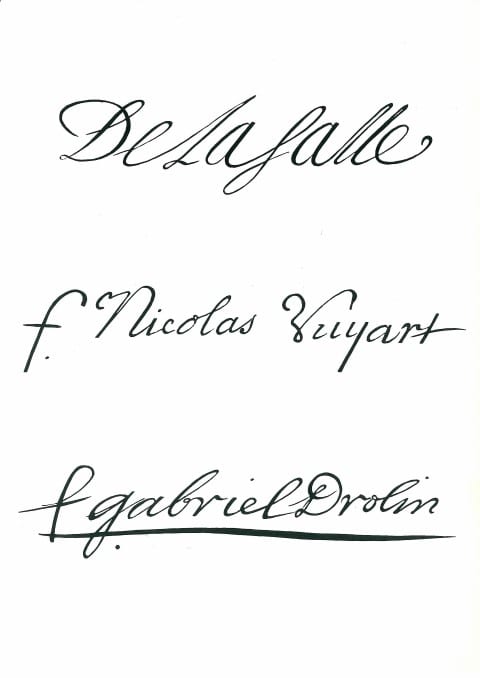 De La Salle
f. Nicolas Vuyart
f gabriel Drolin